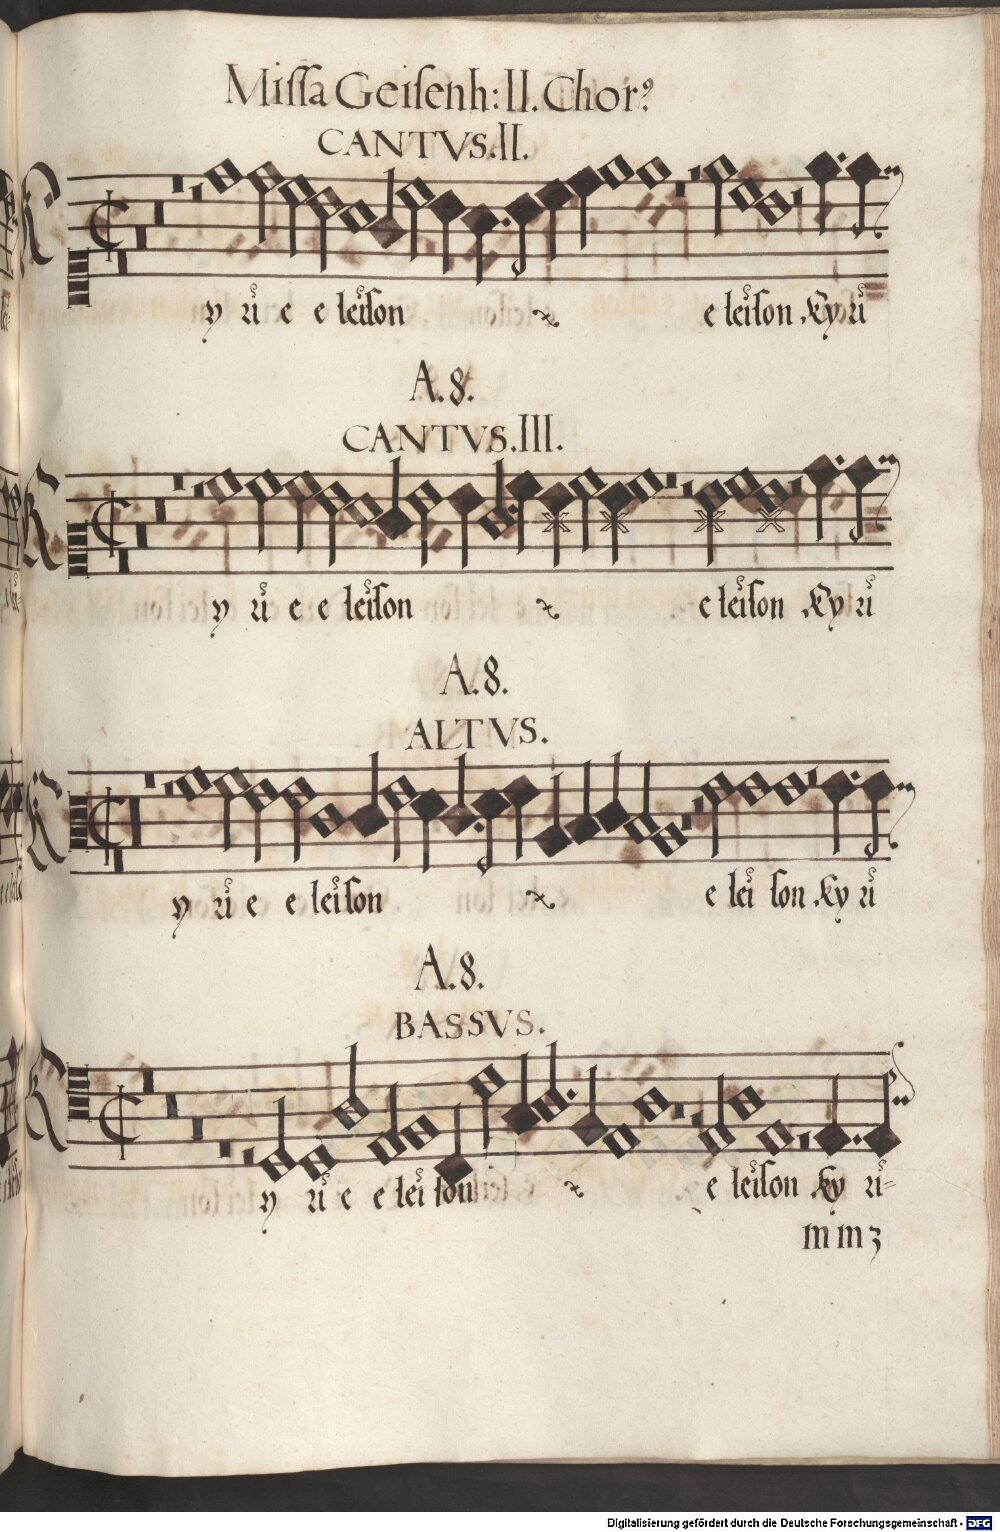 Missa Geisenh: II. Chor⁹
CANTVS. II.
Kyrie eleison ⁊ eleison Kyri
A. 8.
CANTVS. III.
Kyrie eleison ⁊ eleison Kyri
A. 8.
ALTVS.
Kyrie eleison ⁊ eleison Kyri
A. 8.
BASSVS.
Kyrie eleison ⁊ eleison Kyri=
m m 3
Digitalisierung gefördert durch die Deutsche Forschungsgemeinschaft - DFG